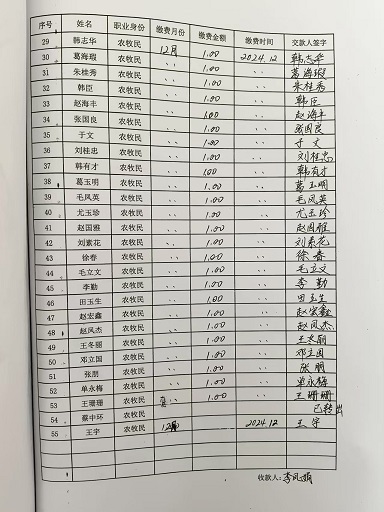 序号 姓名 职业身份 缴费月份 缴费金额 缴费时间 交款人签字
29 韩志华 农牧民 12月 1.00 2024.12 韩志华
30 葛海瑕 农牧民 〃 1.00 〃 葛海瑕
31 朱桂秀 农牧民 〃 1.00 〃 朱桂秀
32 韩臣 农牧民 〃 1.00 〃 韩臣
33 赵海丰 农牧民 〃 1.00 〃 赵海丰
34 张国良 农牧民 〃 1.00 〃 张国良
35 于文 农牧民 〃 1.00 〃 于文
36 刘桂忠 农牧民 〃 1.00 〃 刘桂忠
37 韩有才 农牧民 〃 1.00 〃 韩有才
38 葛玉明 农牧民 〃 1.00 〃 葛玉明
39 毛凤英 农牧民 〃 1.00 〃 毛凤英
40 尤玉珍 农牧民 〃 1.00 〃 尤玉珍
41 赵国雅 农牧民 〃 1.00 〃 赵国雅
42 刘素花 农牧民 〃 1.00 〃 刘素花
43 徐春 农牧民 〃 1.00 〃 徐春
44 毛立文 农牧民 〃 1.00 〃 毛立文
45 李勤 农牧民 〃 1.00 〃 李勤
46 田玉生 农牧民 〃 1.00 〃 田玉生
47 赵宏鑫 农牧民 〃 1.00 〃 赵宏鑫
48 赵凤杰 农牧民 〃 1.00 〃 赵凤杰
49 王冬丽 农牧民 〃 1.00 〃 王冬丽
50 邓立国 农牧民 〃 1.00 〃 邓立国
51 张朋 农牧民 〃 1.00 〃 张朋
52 单永梅 农牧民 〃 1.00 〃 单永梅
53 王珊珊 农牧民 〃 1.00 〃 王珊珊
54 蔡中环 农牧民 已转出
55 王宇 农牧民 12月 2024.12 王宇
收款人:李凤娟